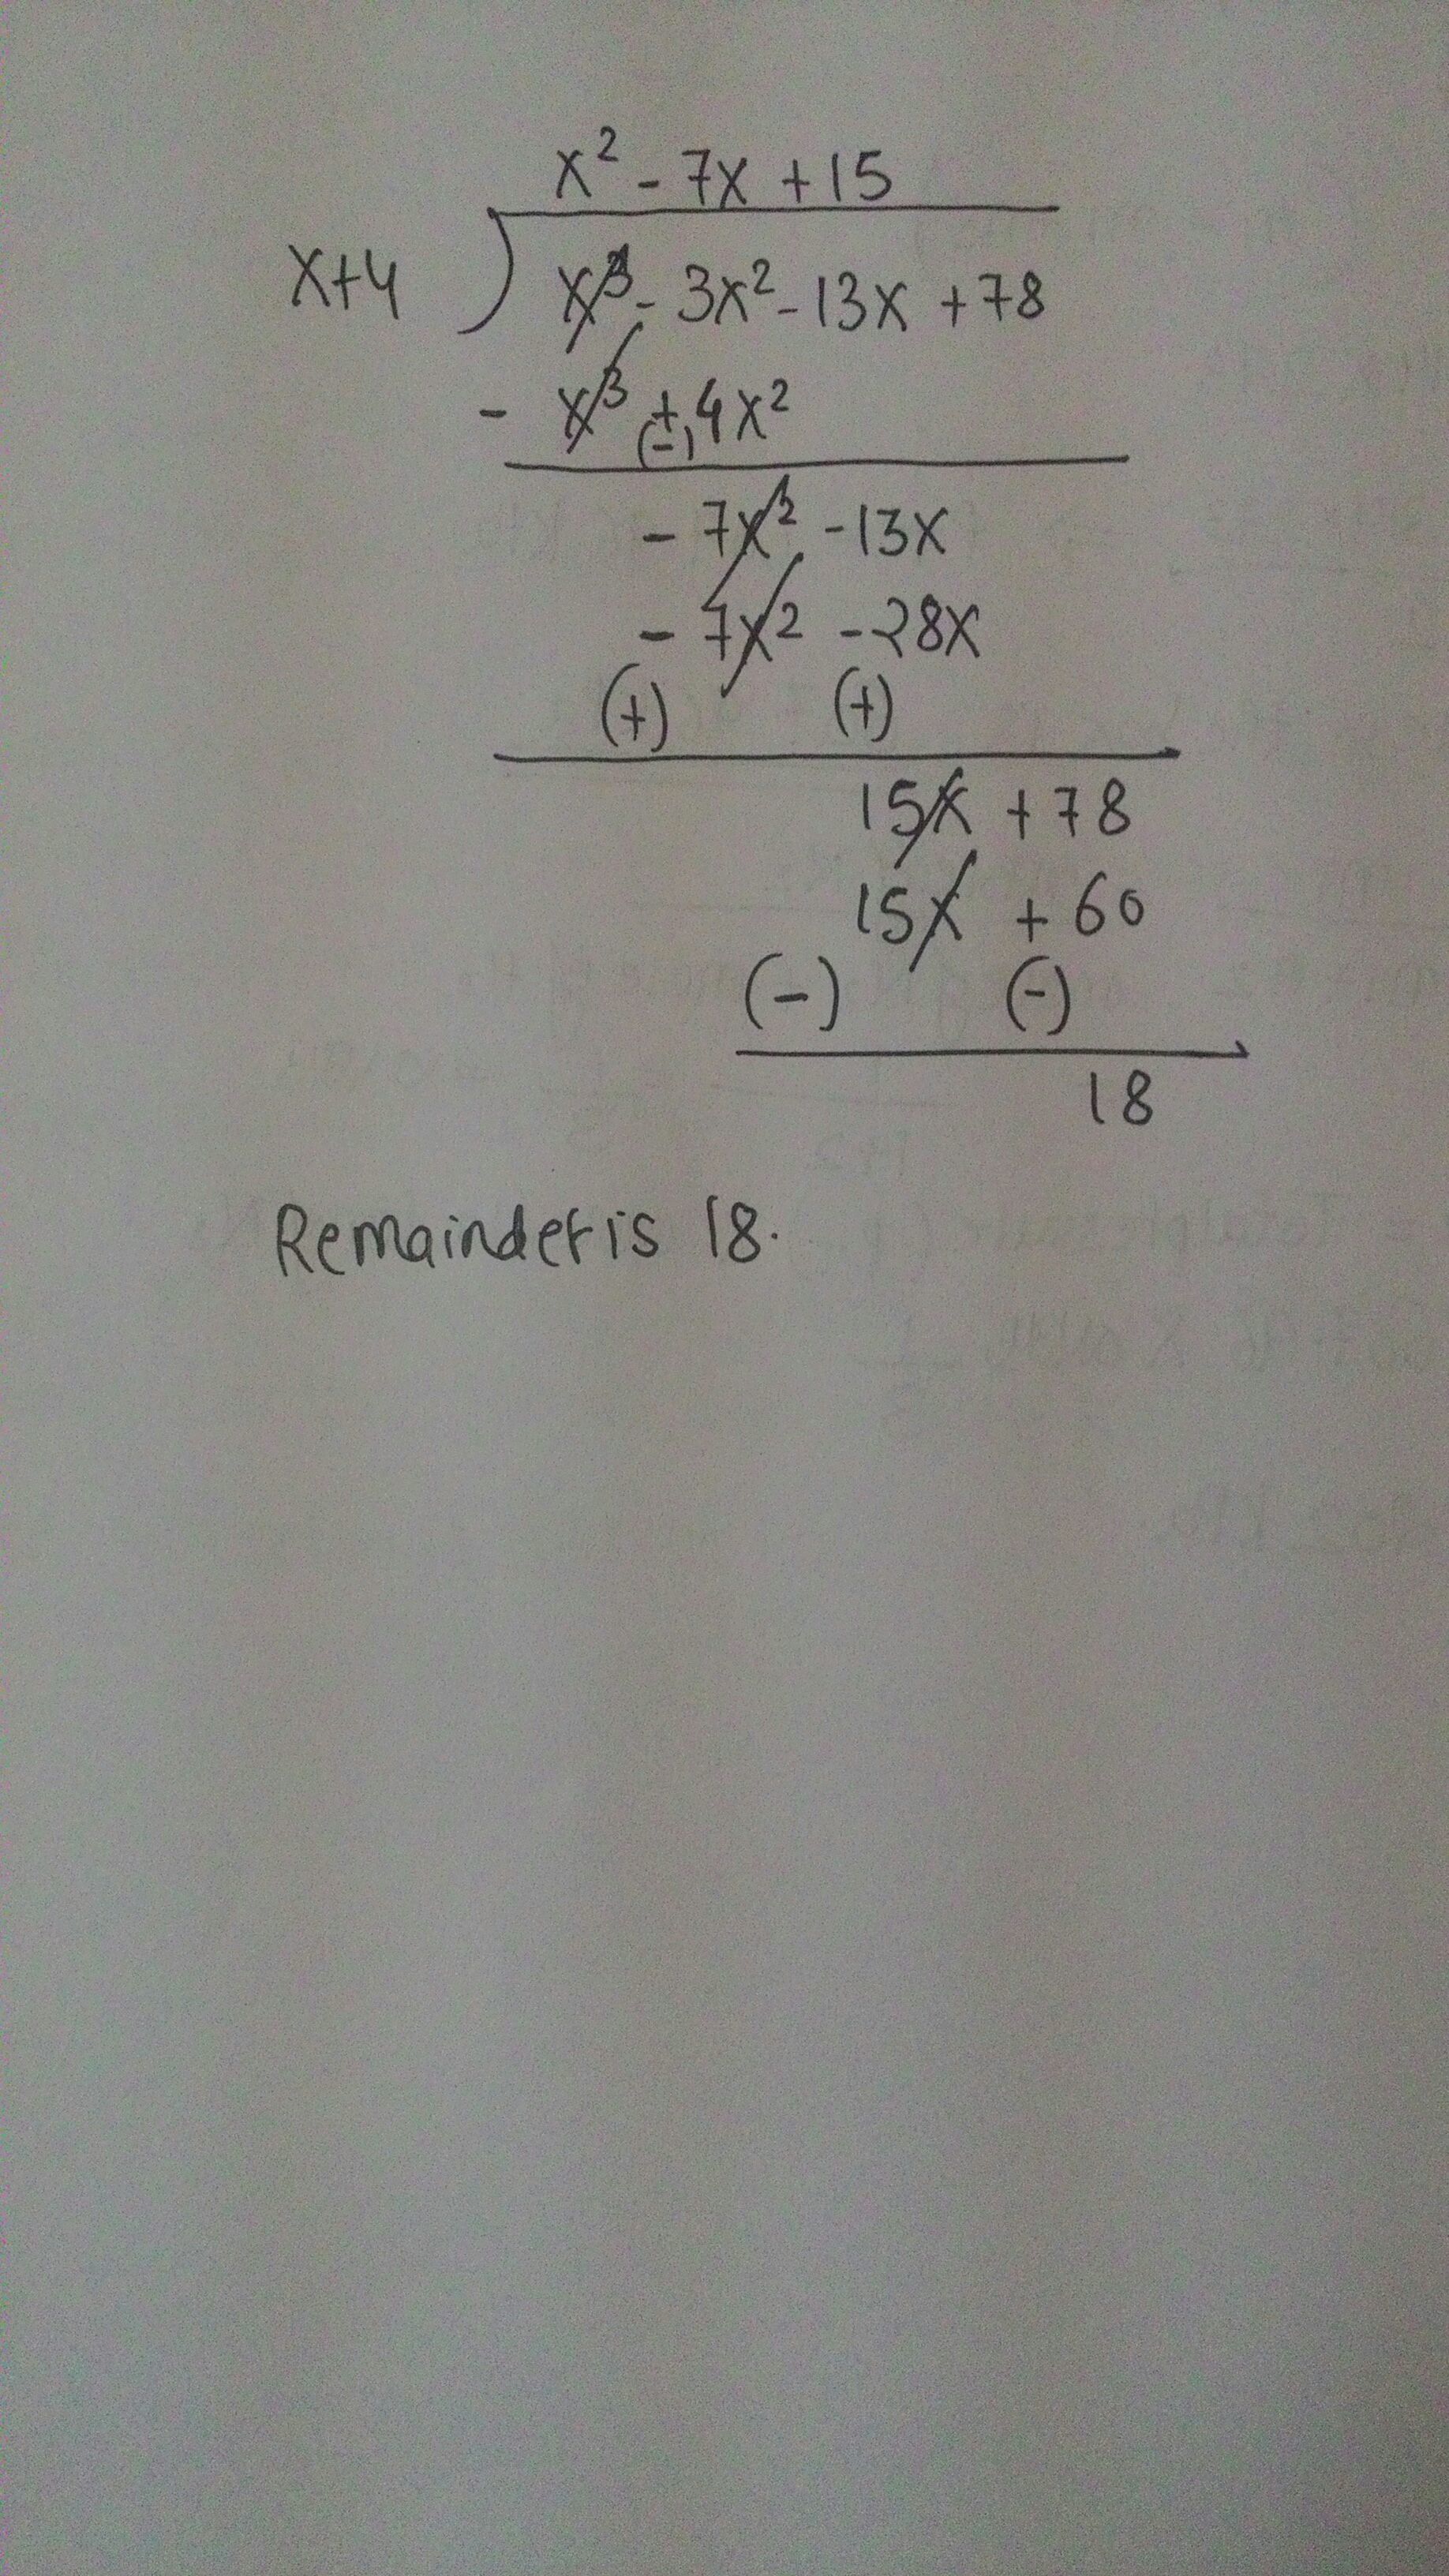 x² - 7x + 15
x+4 ) x³ - 3x² - 13x + 78
- x³ + 4x²
(-)
- 7x² - 13x
- 7x² - 28x
(+) (+)
15x + 78
15x + 60
(-) (-)
18
Remainder is 18.